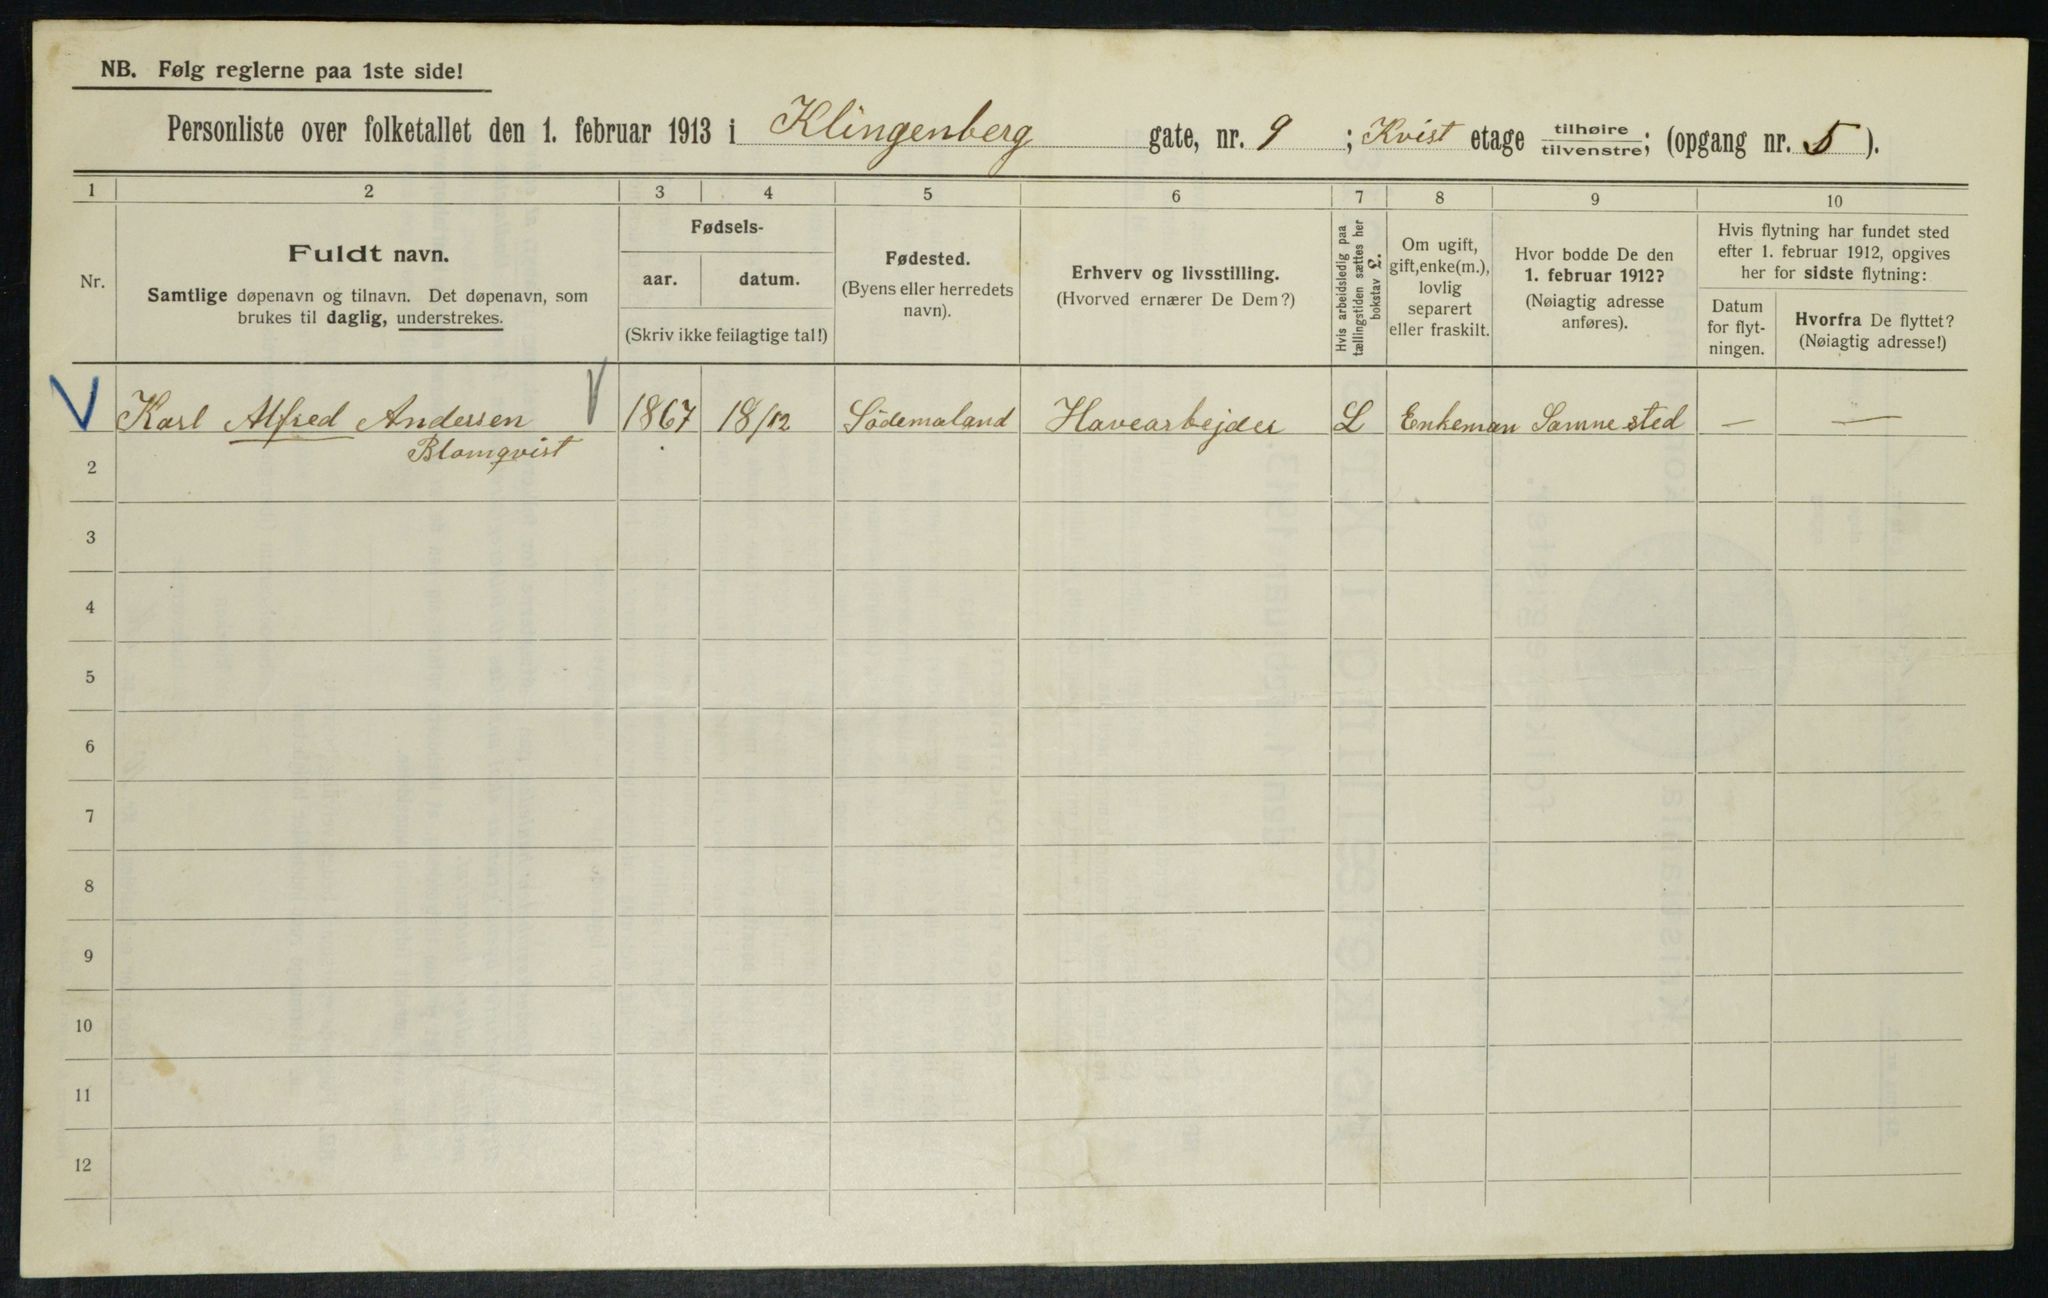 NB. Følg reglerne paa 1ste side!
Personliste over folketallet den 1. februar 1913 i Klingenberg gate, nr. 9 ; Kvist etage tilhøire/tilvenstre; (opgang nr. 5 ).
1 2 3 4 5 6 7 8 9 10
Nr.
Fuldt navn.
Samtlige døpenavn og tilnavn. Det døpenavn, som
brukes til daglig, understrekes.
Fødsels-
aar. datum.
(Skriv ikke feilagtige tal!)
Fødested.
(Byens eller herredets
navn).
Erhverv og livsstilling.
(Hvorved ernærer De Dem?)
Hvis arbeidsledig paa
tællingstiden sættes her
bokstav L.
Om ugift,
gift, enke(m.),
lovlig
separert
eller fraskilt.
Hvor bodde De den
1. februar 1912?
(Nøiagtig adresse
anføres).
Hvis flytning har fundet sted
efter 1. februar 1912, opgives
her for sidste flytning:
Datum
for flyt-
ningen.
Hvorfra De flyttet?
(Nøiagtig adresse!)
Karl Alfred Andersen 1867 18/12 Södemaland Havearbejder L Enkeman Samme sted — —
Blomqvist
2
3
4
5
6
7
8
9
10
11
12